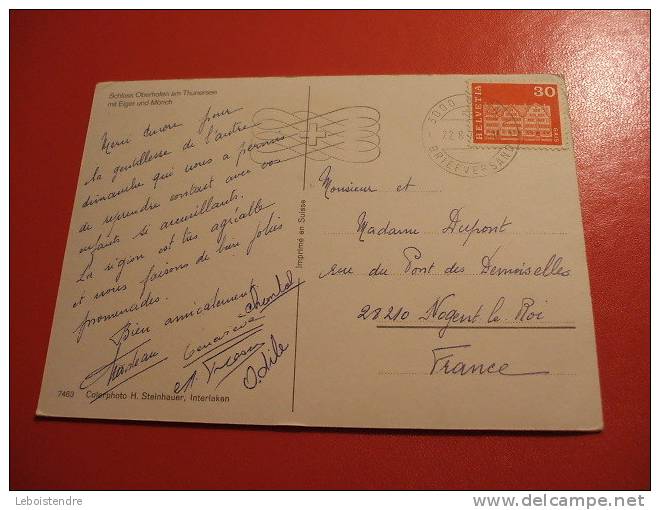 Schloss Oberhofen am Thunersee
mit Eiger und Mönch
Merci encore pour
la gentillesse de l'autre
dimanche qui nous a permis
de reprendre contact avec vos
enfants si accueillants.
La région est très agréable
et nous faisons de bien jolies
promenades.
Bien amicalement
Chantal
Geneviève
Odile
7463 Colorphoto H. Steinhauer, Interlaken
Imprimé en Suisse
3000
22.8
BRIEFVERSAND
HELVETIA
30
Monsieur et
Madame Dupont
rue du Pont des Demoiselles
28210 Nogent le Roi
France
Leboistendre
delcampe.net